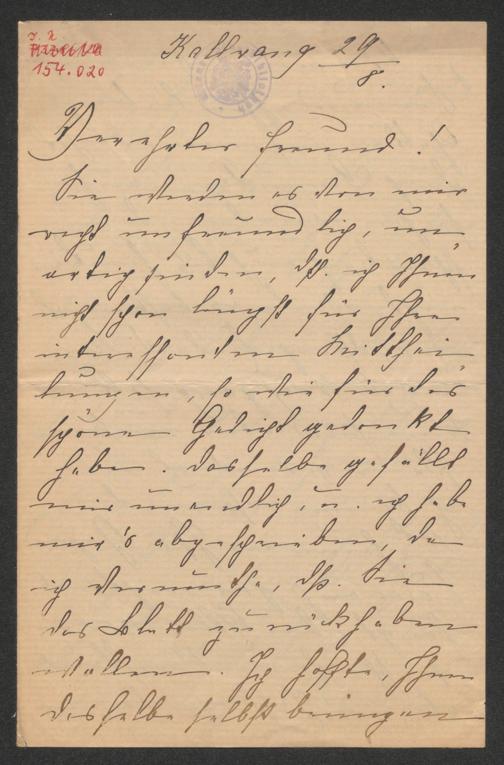 I. N.
154.020
Kallwang 29/8.
Verehrter Freund!
Sie werden es von mir
recht unfreundlich, un-
artig finden, dß. ich Ihnen
nicht schon längst für Ihre
interessanten Mitthei-
lungen, so wie für das
schöne Gedicht gedankt
habe. Dasselbe gefällt
mir unendlich, u. ich habe
mir's abgeschrieben, da
ich vermuthe, dß. Sie
das Blatt zurückhaben
wollen. Ich hoffte, Ihnen
dasselbe selbst bringen